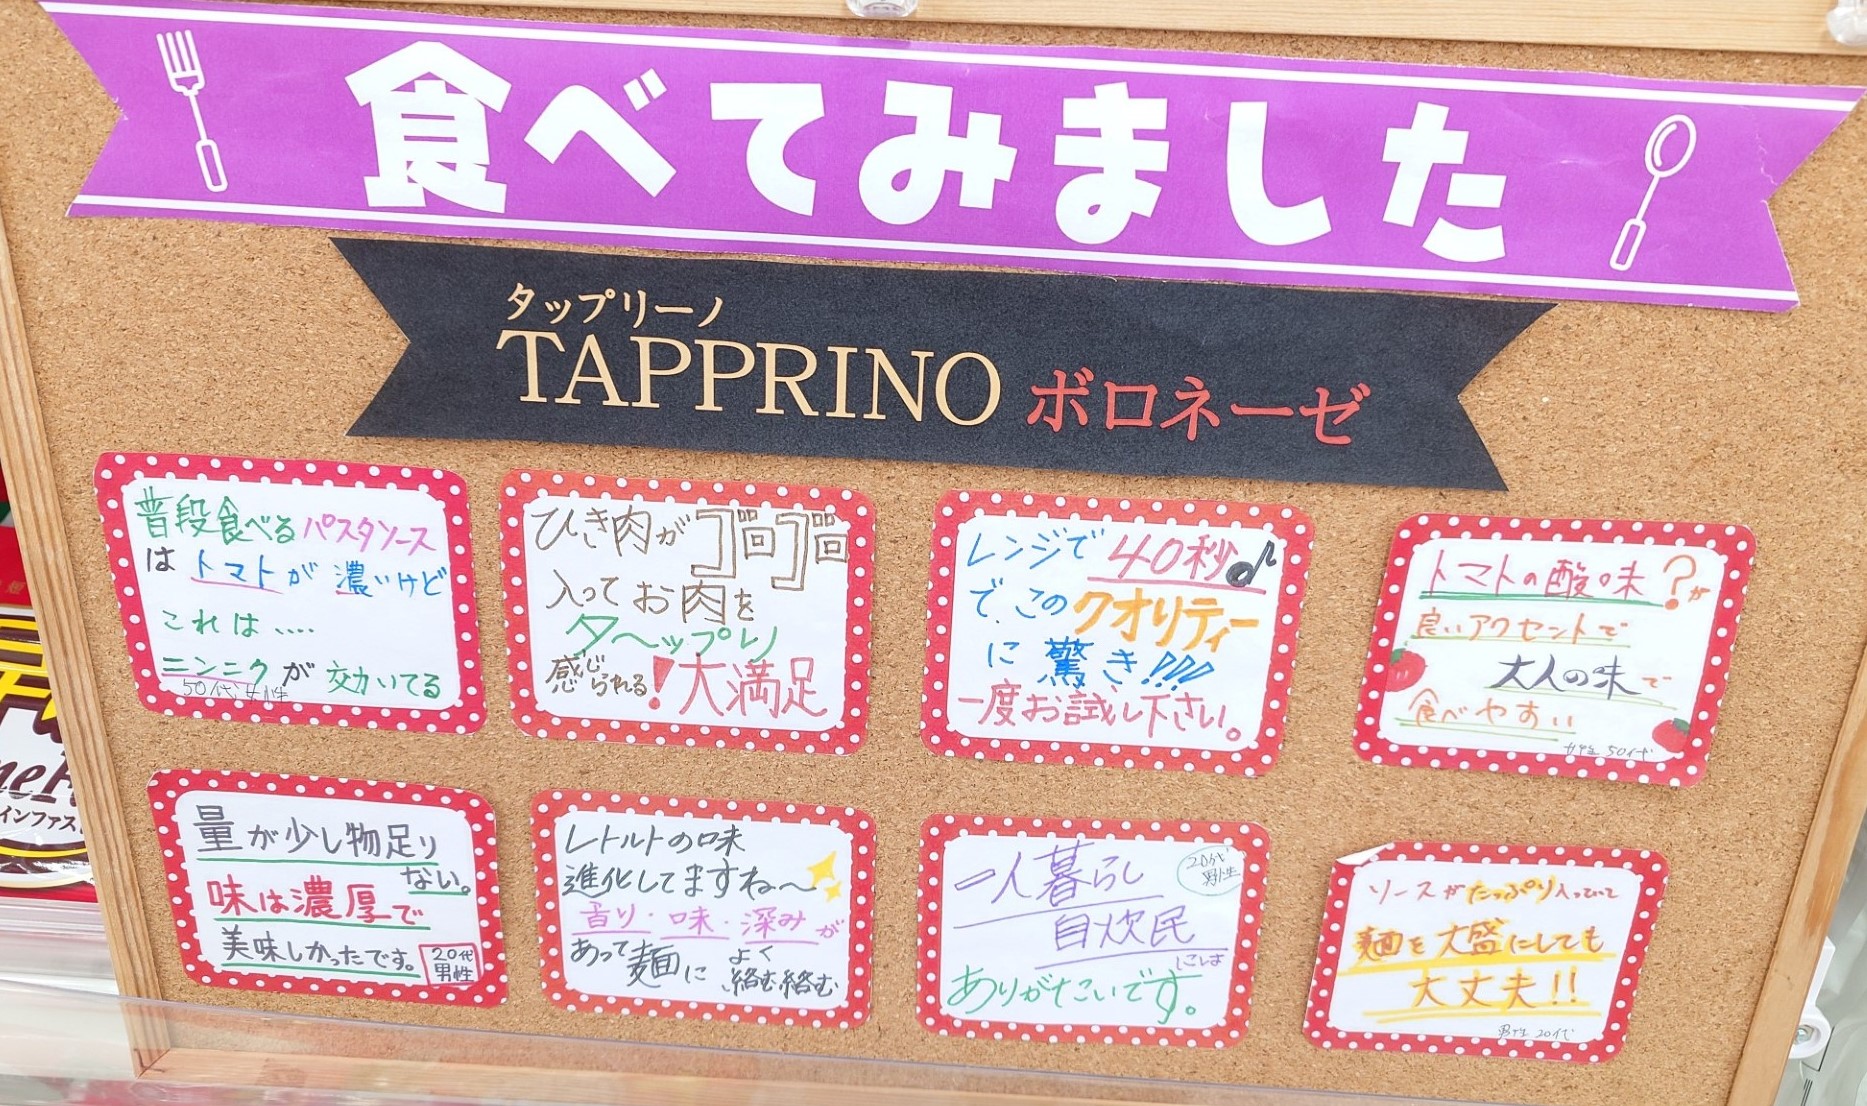 食べてみました
タップリーノ
TAPPRINO ボロネーゼ
普段食べるパスタソース
は トマトが 濃いけど
これは....
ニンニクが 効いてる
50代 女性
ひき肉がゴロゴロ
入ってお肉を
タ〜ップリ
感じられる!大満足
レンジで 40秒♪
で、このクオリティー
に 驚き!!!
一度お試し下さい。
トマトの酸味?が
良いアクセントで
大人の味で
食べやすい
女性 50代
量が少し物足り
ない。
味は濃厚で
美味しかったです。
20代
男性
レトルトの味
進化してますね〜
香り・味・深みが
あって麺に よく
絡む絡む
一人暮らし
20代
男性
自炊民
には
ありがたいです。
ソースがたっぷり入っていて
麺を大盛にしても
大丈夫!!
男性 20代
インファス